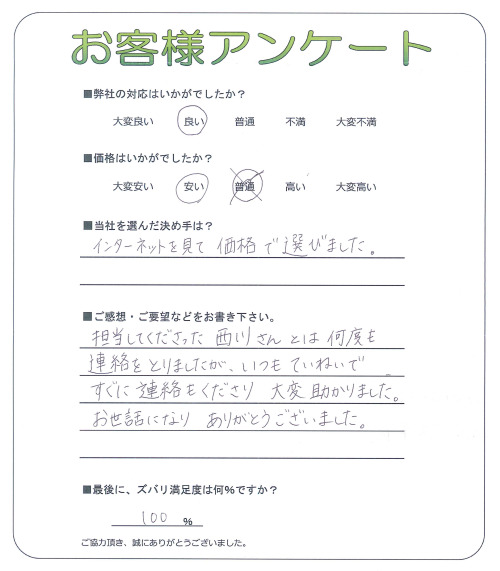 お客様アンケート
■弊社の対応はいかがでしたか？
大変良い 良い 普通 不満 大変不満
■価格はいかがでしたか？
大変安い 安い 普通 高い 大変高い
■当社を選んだ決め手は？
インターネットを見て 価格で選びました。
■ご感想・ご要望などをお書き下さい。
担当してくださった 西川さんとは 何度も
連絡をとりましたが、いつも ていねいで
すぐに連絡もくださり 大変助かりました。
お世話になり ありがとうございました。
■最後に、ズバリ満足度は何%ですか？
100 %
ご協力頂き、誠にありがとうございました。